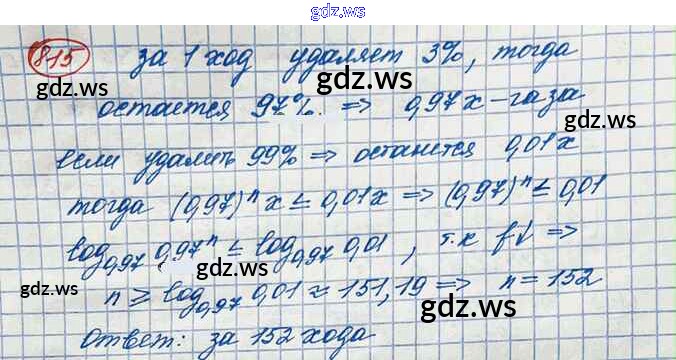 gdz.ws
815 за 1 ход удаляет 3%, тогда
gdz.ws
gdz.ws
остается 97%. => 0,97x - газа
gdz.ws
если удалить 99% => останется 0,01x
тогда (0,97)ⁿ x ≤ 0,01x => (0,97)ⁿ ≤ 0,01
log₀,₉₇ 0,97ⁿ ≤ log₀,₉₇ 0,01 , т.к f↓ =>
gdz.ws
gdz.ws
n ≥ log₀,₉₇ 0,01 ≈ 151,19 => n = 152
gdz.ws
Ответ: за 152 хода